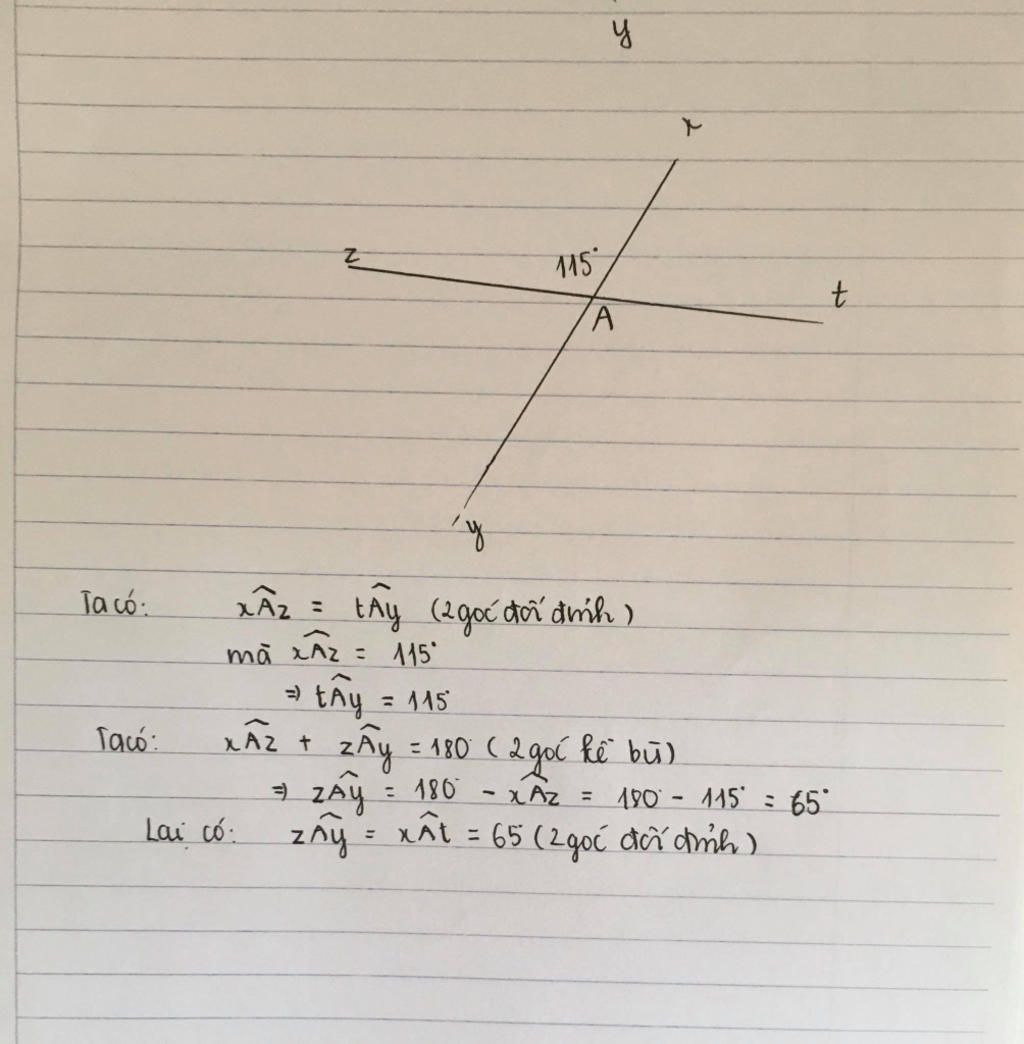 y
x
z
115°
t
A
y
Ta có: xÂz = tÂy (2 góc đối đỉnh)
mà xÂz = 115°
⇒ tÂy = 115°
Ta có: xÂz + zÂy = 180° (2 góc kề bù)
⇒ zÂy = 180° - xÂz = 180° - 115° = 65°
Lại có: zÂy = xÂt = 65° (2 góc đối đỉnh)